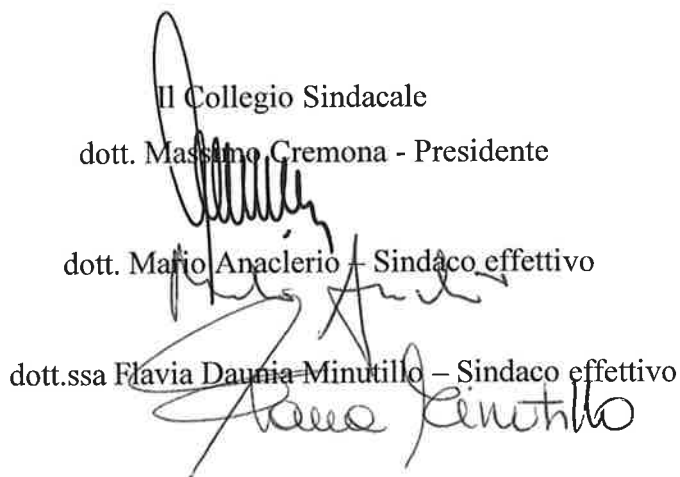 Il Collegio Sindacale
dott. Massimo Cremona - Presidente
dott. Mario Anaclerio – Sindaco effettivo
dott.ssa Flavia Daunia Minutillo – Sindaco effettivo
Minutillo